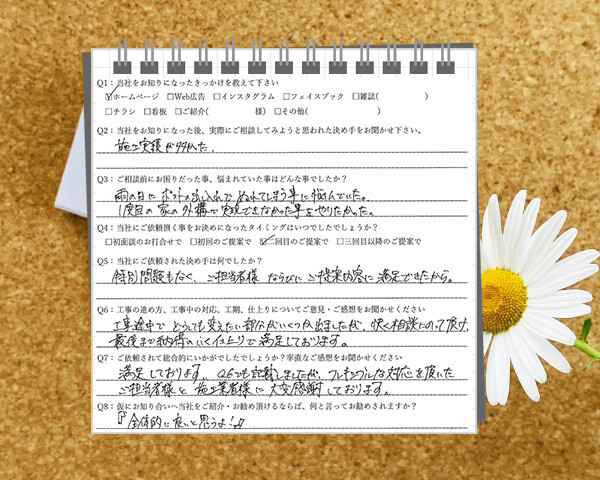 Q1：当社をお知りになったきっかけを教えて下さい
☑ホームページ □Web広告 □インスタグラム □フェイスブック □雑誌( )
□チラシ □看板 □ご紹介( 様) □その他( )
Q2：当社をお知りになった後、実際にご相談してみようと思われた決め手をお聞かせ下さい。
施工実績が多かた。
Q3：ご相談前にお困りだった事、悩まれていた事はどんな事でしたか？
雨の日に 出し入れで ぬれてしまう事に悩んでいた。
1度目の家の外構で実現できなかった事をやりたかった。
Q4：当社にご依頼頂く事をお決めになったタイミングはいつでしたでしょうか？
□初面談のお打合せで □初回のご提案で ☑二回目のご提案で □三回目以降のご提案で
Q5：当社にご依頼された決め手は何でしたか？
特別問題もなく、ご担当者様 ならびに ご提案内容に満足できたから。
Q6：工事の進め方、工事中の対応、工期、仕上りについてご意見・ご感想をお聞かせください
工事途中で どうしても変えたい部分がいくつか出ましたが、快く相談にのって頂け
最後まで納得のいく仕上りで満足しております。
Q7：ご依頼されて総合的にいかがでしたでしょうか？率直なご感想をお聞かせください
満足しております。Q6でも記載しましたが、フレキシブルな対応を頂いた
ご担当者様と 施工業者様に大変感謝しております。
Q8：仮にお知り合いへ当社をご紹介・お勧め頂けるならば、何と言ってお勧めされますか？
『全体的に良いと思うよ！』